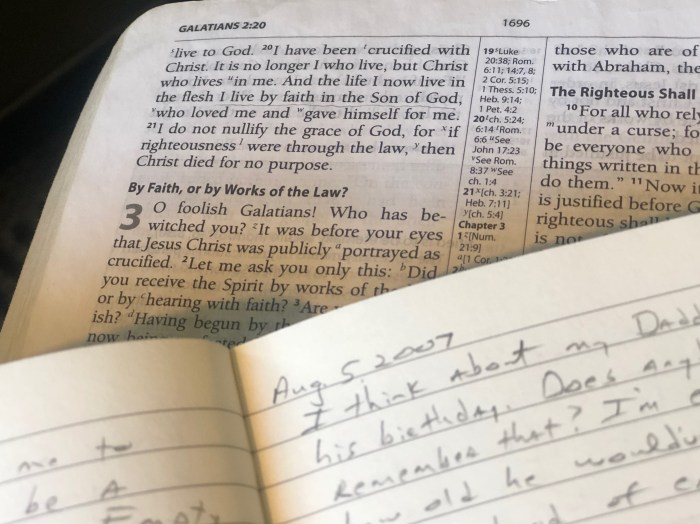 GALATIANS 2:20
1696
ˢlive to God. ²⁰I have been ᵗcrucified with
Christ. It is no longer I who live, but Christ
who lives ᵘin me. And the life I now live in
the flesh I live by faith in the Son of God,
ᵛwho loved me and ʷgave himself for me.
²¹I do not nullify the grace of God, for ˣif
righteousness¹ were through the law, ʸthen
Christ died for no purpose.
By Faith, or by Works of the Law?
3 O foolish Galatians! Who has be-
witched you? ᶻIt was before your eyes
that Jesus Christ was publicly ᵃportrayed as
crucified. ²Let me ask you only this: ᵇDid
you receive the Spirit by works of
or by ᶜhearing with faith? ³Are
ish? ᵈHaving begun by
now
19 ˢLuke
20:38; Rom.
6:11; 14:7, 8;
2 Cor. 5:15;
1 Thess. 5:10;
Heb. 9:14;
1 Pet. 4:2
20 ᵗch. 5:24;
6:14; Rom.
6:6 ᵘSee
John 17:23
ᵛSee Rom.
8:37 ʷSee
ch. 1:4
21 ˣ[ch. 3:21;
Heb. 7:11]
ʸ[ch. 5:4]
Chapter 3
1 ᶻ[Num.
21:9]
ᵃ[1 Cor.
those who are of
with Abraham, the
The Righteous Shall
¹⁰For all who rely
ᵐunder a curse; fo
be everyone who
things written in th
do them.” ¹¹Now i
is justified before G
righteous shall
is
me to
be A
Empty
Aug 5, 2007
I think About my Dadd
his birthday. Does any
Remember that? I'm
old he wouldn
of